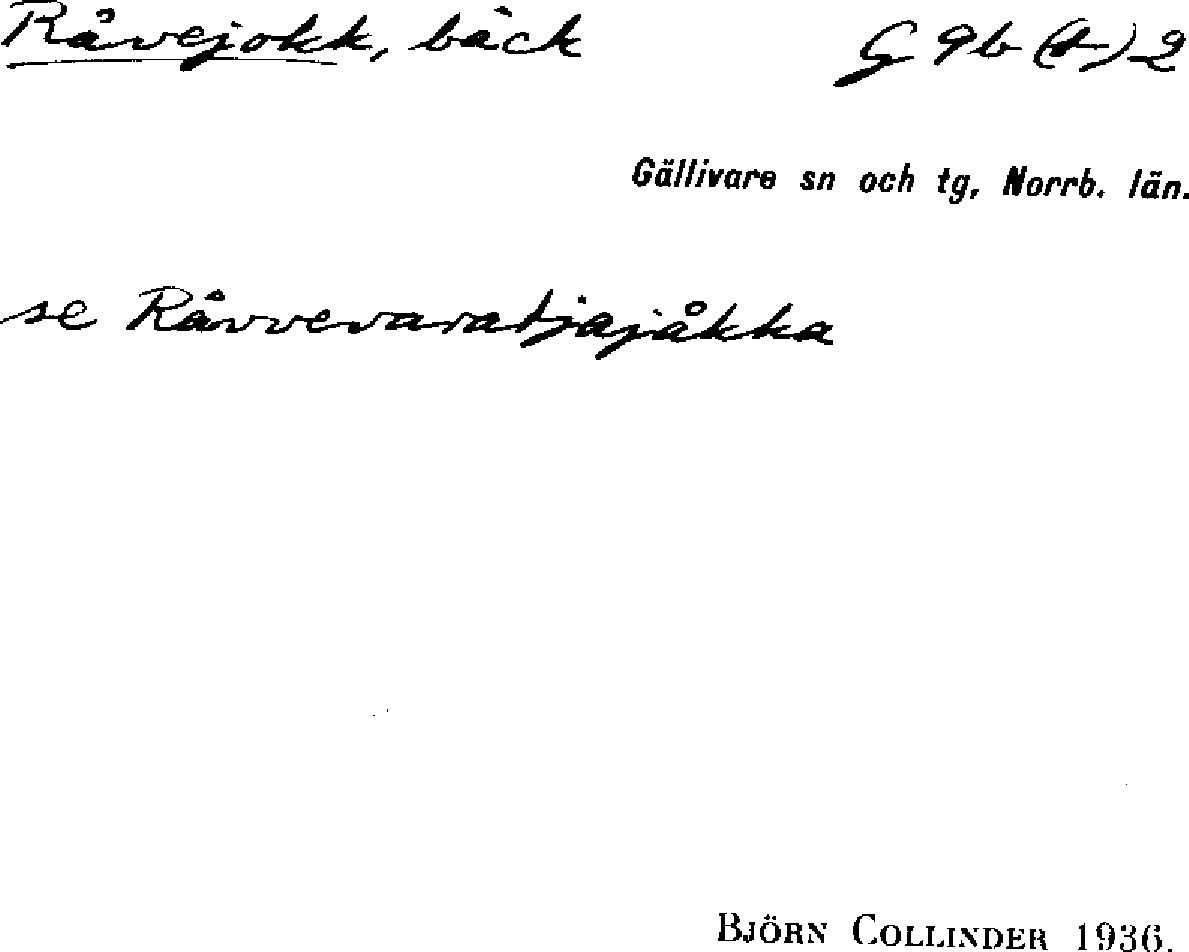 Råvejokk, bäck G 9b (d) 2
Gällivare sn och tg, Norrb. län.
se Råvvevaratjajåkka
BJÖRN COLLINDER 1936.